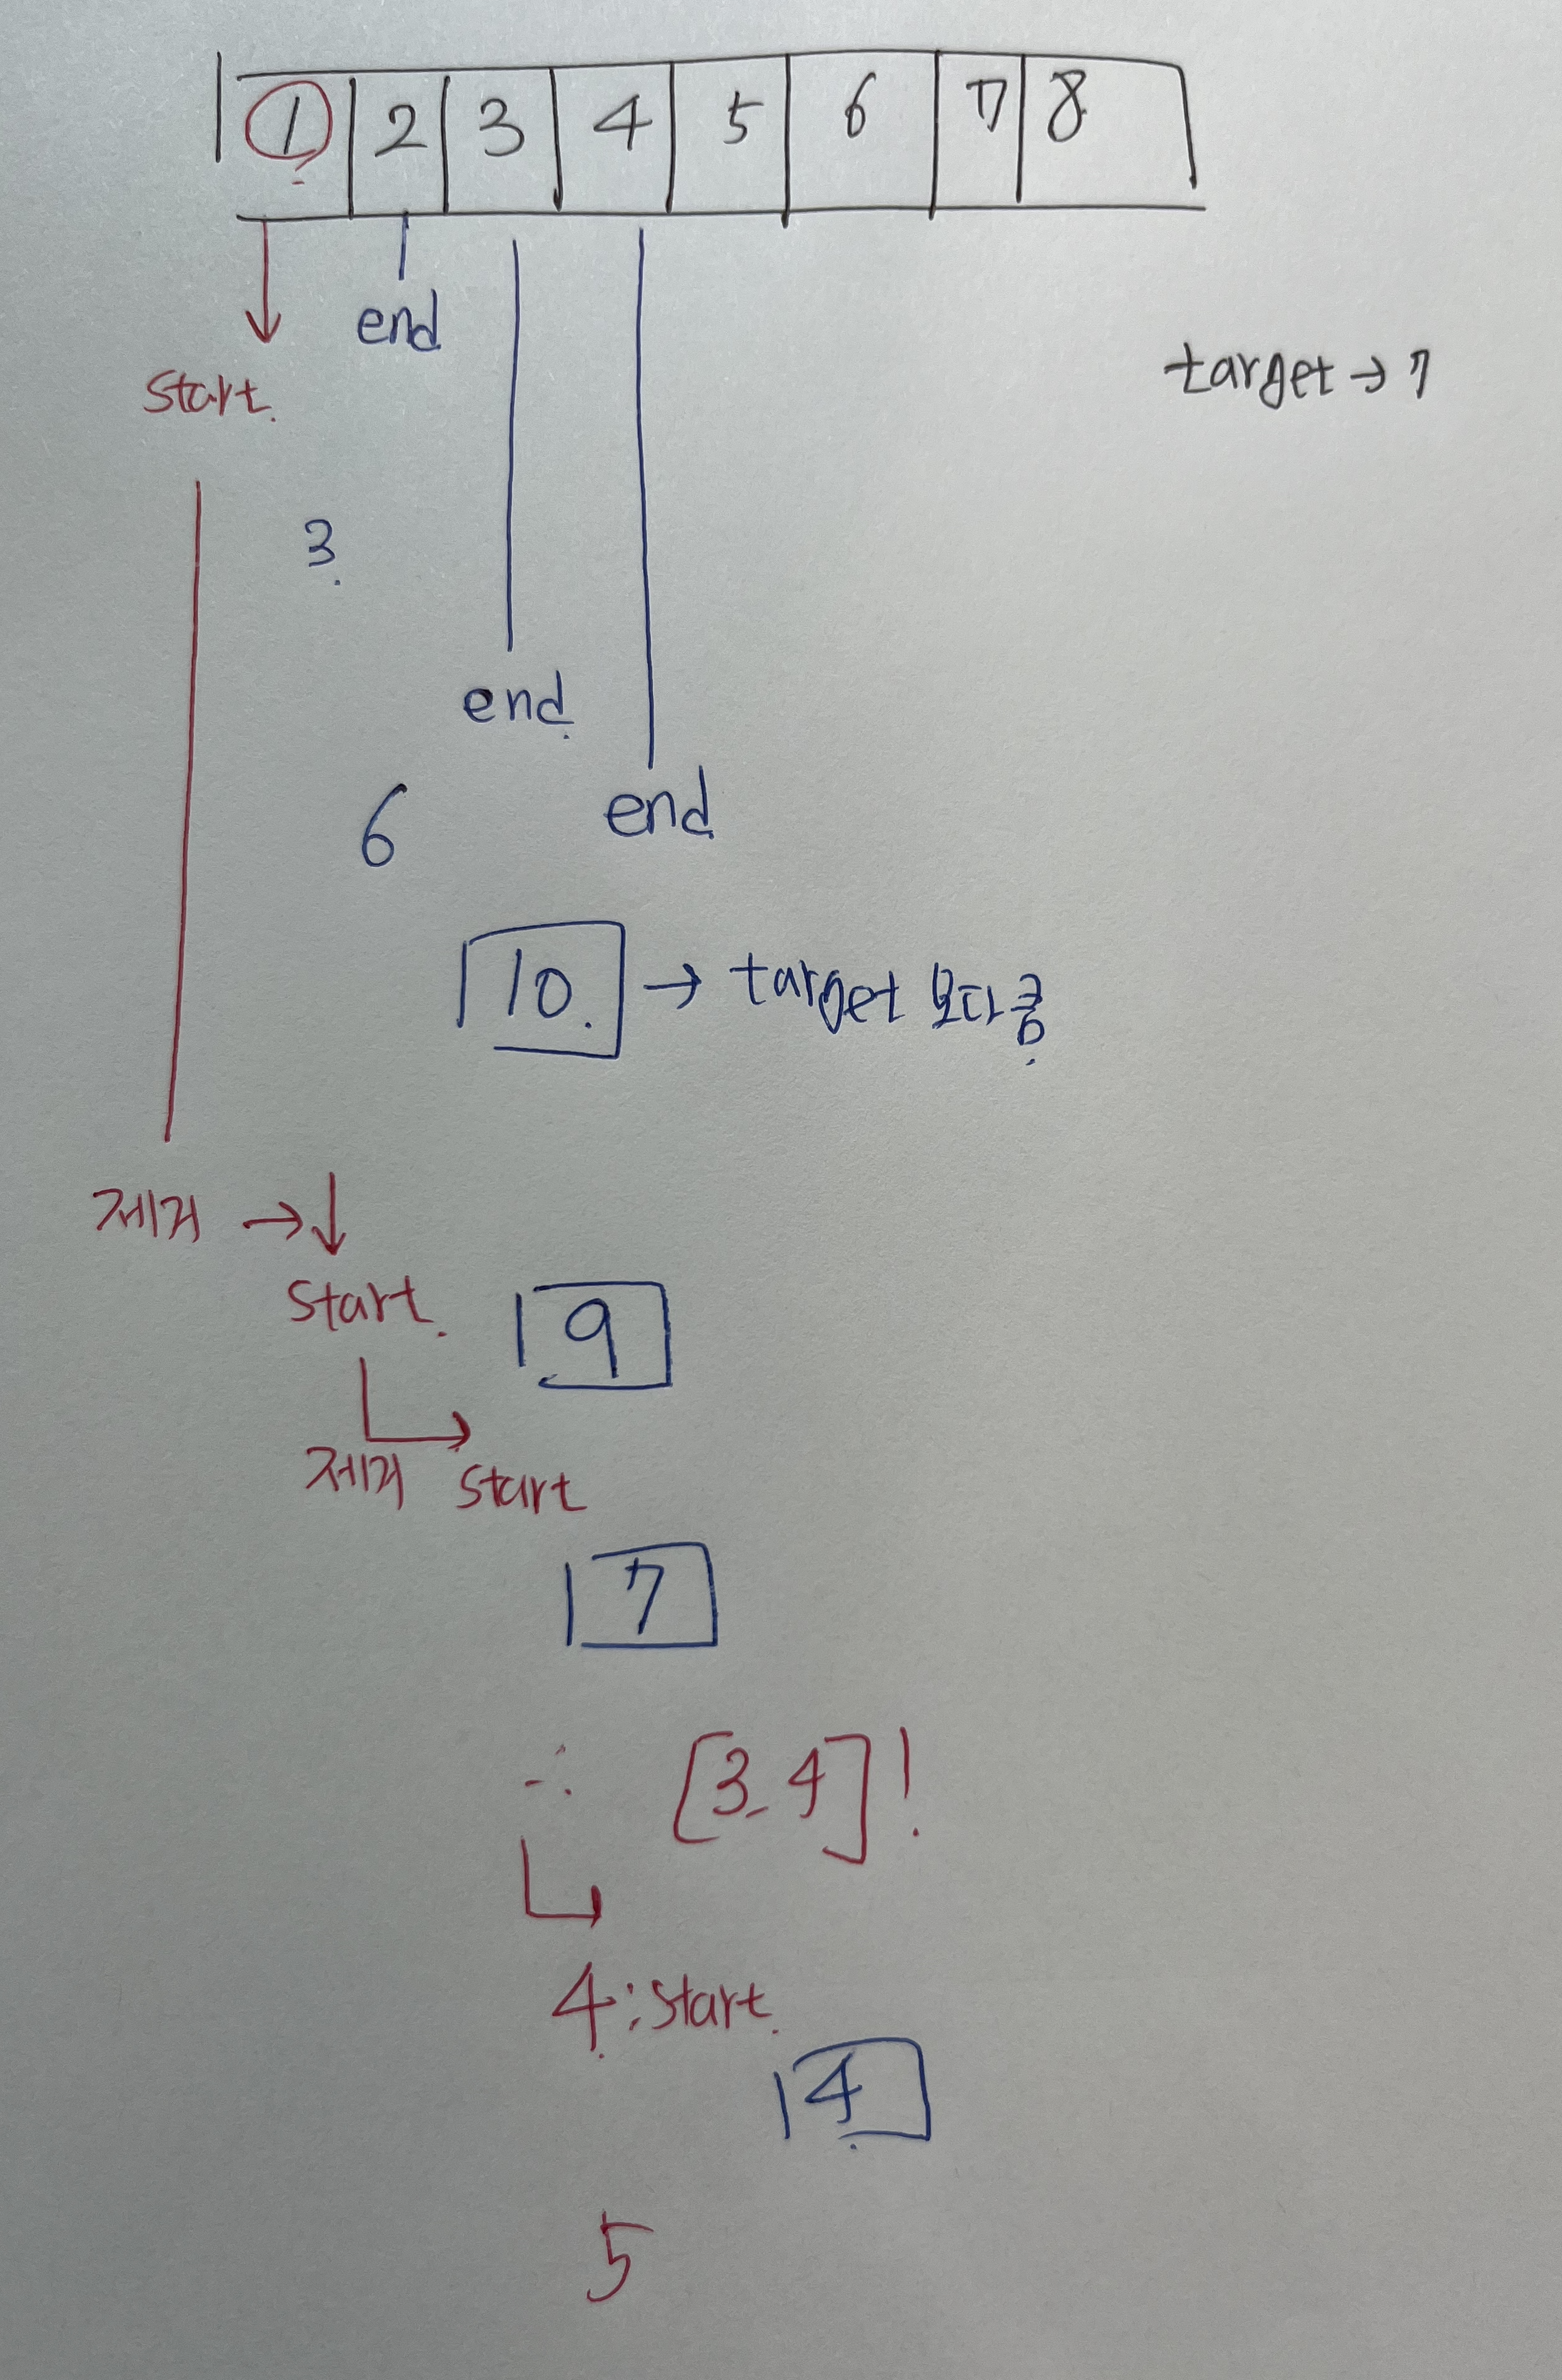 1 2 3 4 5 6 7 8
end
start.
target → 7
3.
end.
end
6
10. → target 보다 큼.
제거 → ↓
start.
9
제거 start
7
∴ [3, 4]!
4 : start.
4.
5